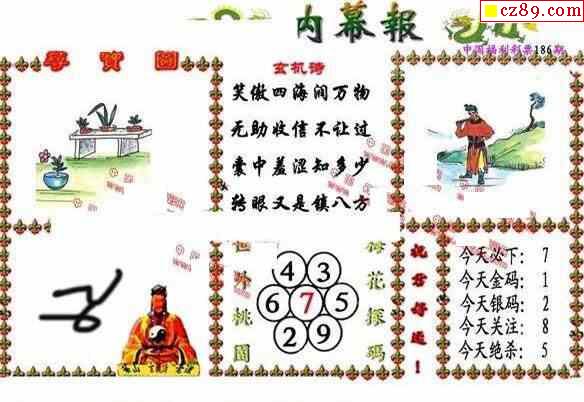 cz89.com
内幕報
中国福利彩票186期
尋寶圖
玄机诗
笑傲四海闯万物
无助收信不让过
囊中羞涩知多少
转眼又是镇八方
桃園
梅花探码
祝您好运！
4 3
6 7 5
2 9
今天必下：7
今天金码：1
今天银码：2
今天关注：8
今天绝杀：5